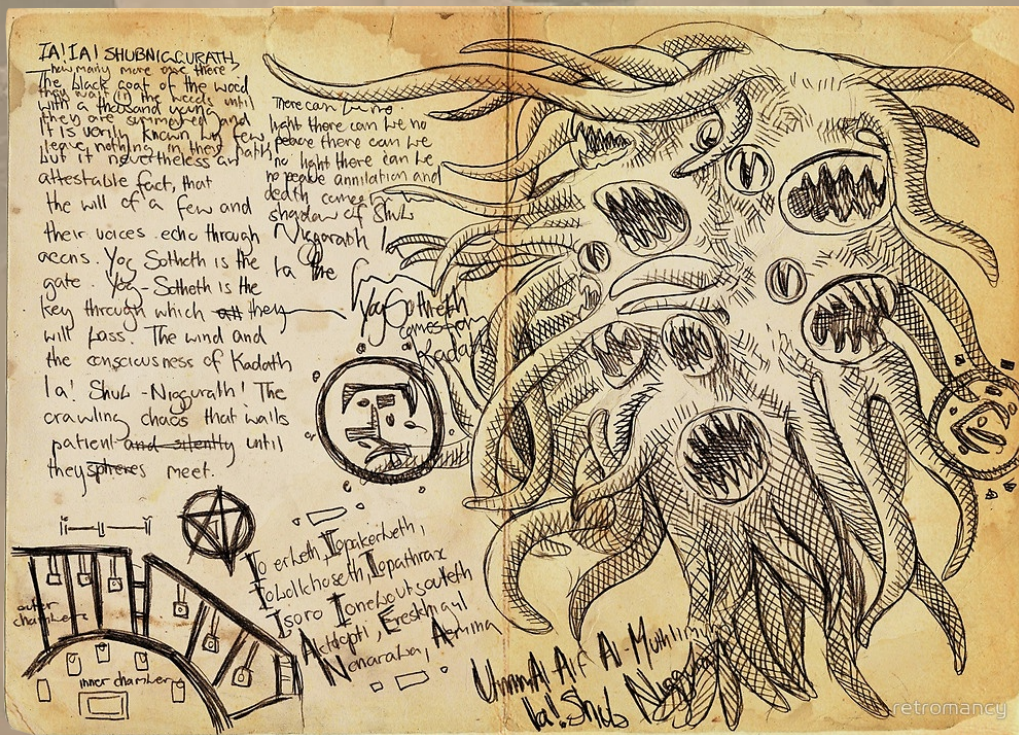 IA! IA! SHUBNIGGURATH
how many more are there
The black goat of the wood
that wait in the weeds until
with a thousand young
they are summoned and
It is verily known by few
leave nothing in their path
but it nevertheless an
attestable fact, that
the will of a few and
their voices echo through
aeons. Yog Sotheth is the
gate. Yog-Sotheth is the
key through which all they
will pass. The wind and
the consciousness of Kadath
Ia! Shub-Niggurath! The
crawling chaos that walls
patient and silently until
they spheres meet.
There can be no
light there can be no
peace there can be
no light there can be
no peace annilation and
death comes
shadow of Shub
Niggarath!
Ia the
Yog Sotheth
comes from
Kadath
outer
chambers
inner chamber
Io erketh, Iopakerketh,
Iobolkhoseth, Iopathrax
Isoro Ioneboutsouteth
Aktiopti, Ereskhigayl
Nenaraba, Aemina
Ummal Alf Al-Muhlim
Ia! Shub Niggurath
retromancy